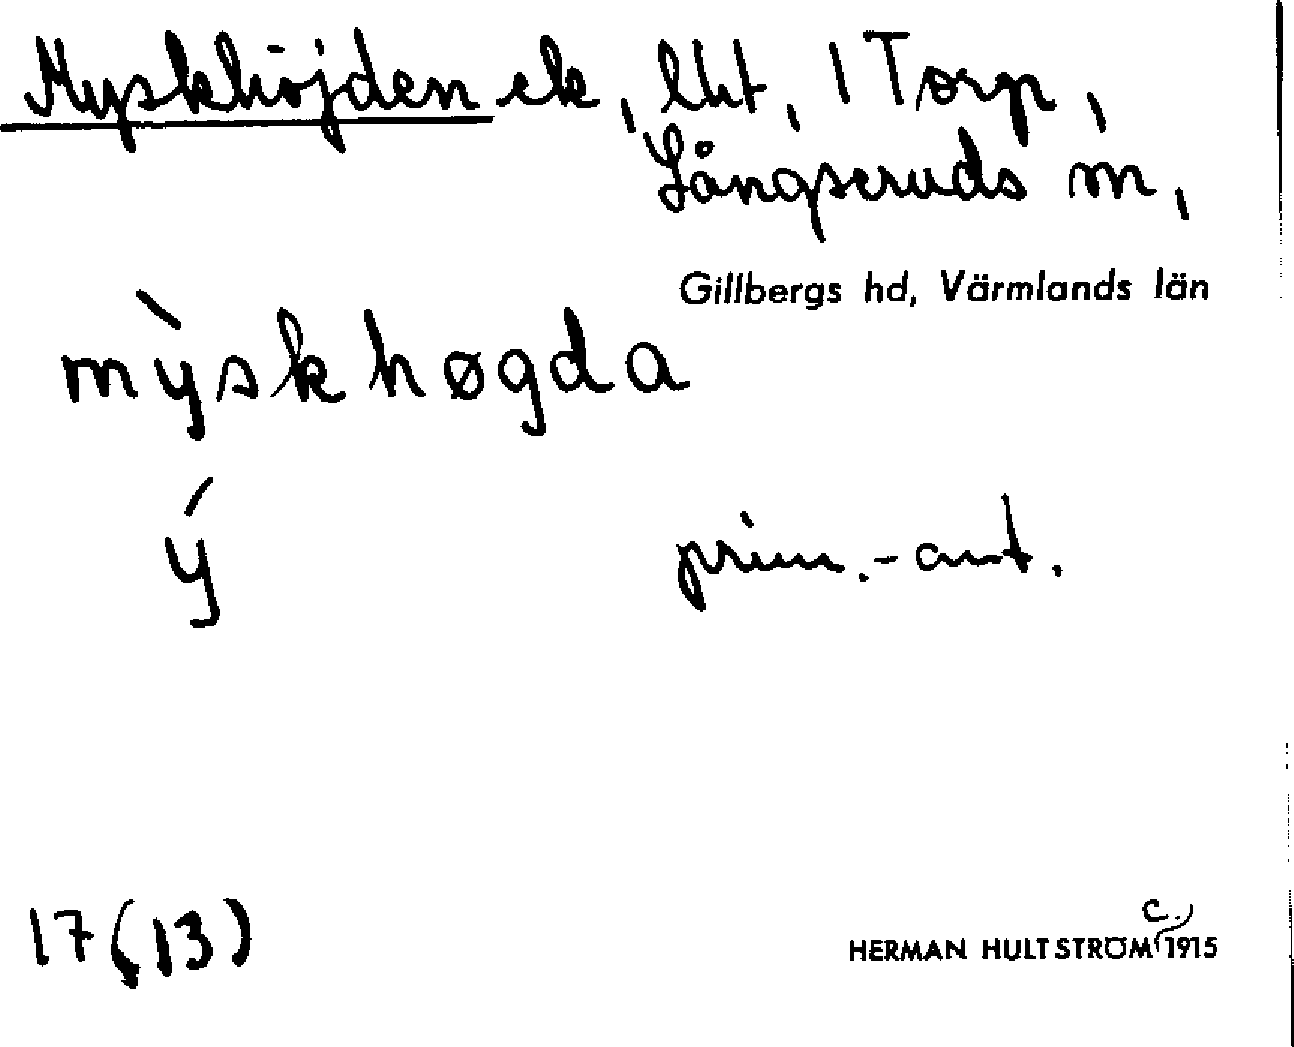 Myskhöjden ek, lht, 1 Torp,
Långseruds sn,
Gillbergs hd, Värmlands län
mỳskhøgda
ý prim.-ant.
17(13)
HERMAN HULTSTRÖM c. 1915